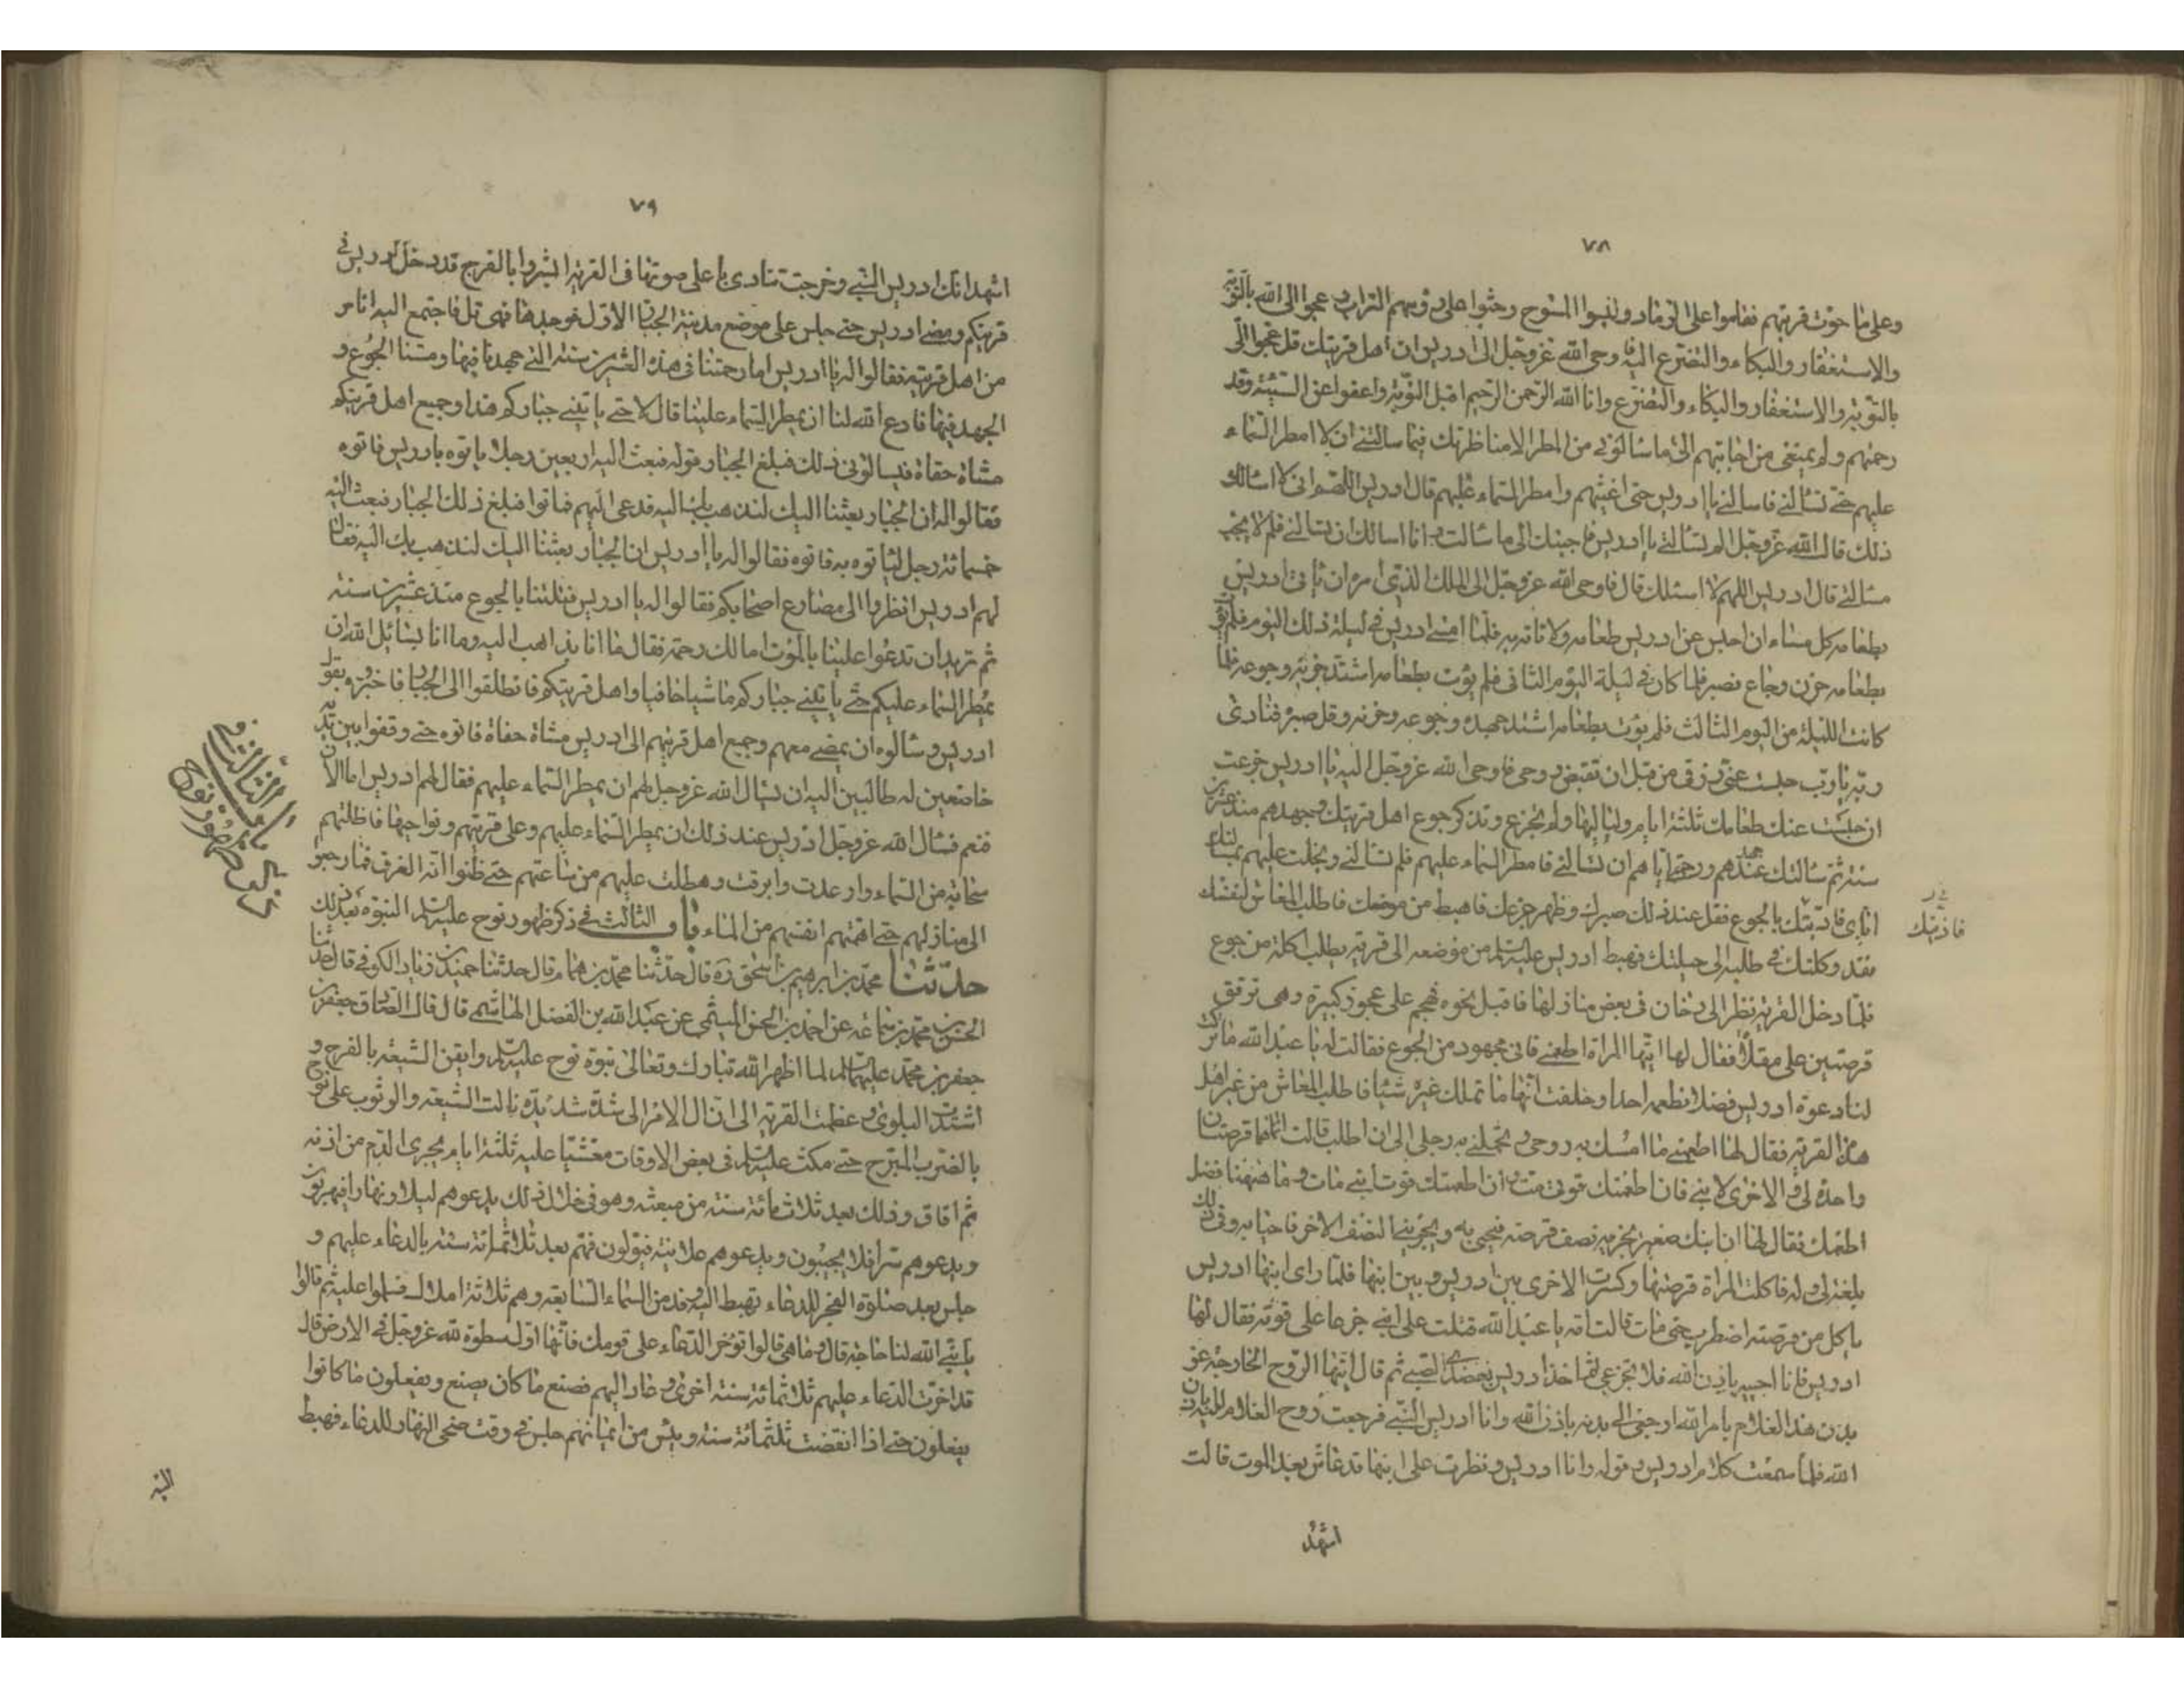 ٧٨
وعلى ما حوت قريتهم فقاموا على الرماد ولبسوا المسوح وحثوا على رؤسهم التراب وعجوا الى الله بالتوبة
والاستغفار والبكاء والتضرع اليه فاوحى الله عزوجل الى ادريس ان اهل قريتك قد عجوا الى
بالتوبة والاستغفار والبكاء والتضرع وانا الله الرحمن الرحيم اقبل التوبة واعفوا عن السيئة وقد
رحمتهم ولم يمنعنى من اجابتهم الى ما سالونى من المطر الا مناظرتك فيما سالتنى ان لا امطر السماء
عليهم حتى تسالنى فاسالنى يا ادريس حتى اغيثهم وامطر السماء عليهم قال ادريس اللهم انى لا اسالك
ذلك قال الله عزوجل الم تسالنى يا ادريس فاجبتك الى ما سالت وانا اسالك ان تسالنى فلم لا تجب
مسالتى قال ادريس اللهم لا اسئلك قال فاوحى الله عزوجل الى الملك الذى امره ان ياتى ادريس
بطعامه كل مساء ان احبس عن ادريس طعامه ولا تاته به فلما امسى ادريس فى ليلة ذلك اليوم فلم يؤت
بطعامه حزن وجاع فصبر فلما كان فى ليلة اليوم الثانى فلم يؤت بطعامه اشتد حزنه وجوعه فلما
كانت الليلة من اليوم الثالث فلم يؤت بطعامه اشتد جهده وجوعه وحزنه وقل صبره فنادى
ربه يا رب حبست عنى رزقى من قبل ان تقبض روحى فاوحى الله عزوجل اليه يا ادريس جزعت
ان حبست عنك طعامك ثلثة ايام ولياليها ولم تجزع وتذكر جوع اهل قريتك وجهدهم منذ عشرين
سنة ثم سالتك عند جهدهم ورحمتى اياهم ان تسالنى فامطر السماء عليهم فلم تسالنى وبخلت عليهم بمسالتك
اياى فادبتك بالجوع فقل عند ذلك صبرك وظهر جزعك فاهبط من موضعك فاطلب المعاش لنفسك
فقد وكلتك فى طلبه الى حيلتك فهبط ادريس عليه السلم من موضعه الى قرية يطلب اكلة من جوع
فلما دخل القرية نظر الى دخان فى بعض منازلها فاقبل نحوه فهجم على عجوز كبيرة وهى ترقق
قرصتين على مقلاة فقال لها ايتها المراة اطعمنى فانى مجهود من الجوع فقالت له يا عبد الله ما تركت
لنا دعوة ادريس فضلا نطعمه احدا وحلفت انها ما تملك غيره شيئا فاطلب المعاش من غير اهل
هذه القرية فقال لها اطعمنى ما امسك به روحى وتحملنى به رجلى الى ان اطلب قالت انما هما قرصتان
واحدة لى والاخرى لابنى فان اطعمتك قوتى مت وان اطعمتك قوت ابنى مات وما هيهنا فضل
اطعمك فقال لها ان ابنك صغير يجزيه نصف قرصة فيحيى به ويجزينى النصف الاخر فاحيا به وفى ذلك
بلغة لى وله فاكلت المراة قرصتها وكسرت الاخرى بين ادريس وبين ابنها فلما راى ابنها ادريس
ياكل من قرصته اضطرب حتى مات قالت امه يا عبد الله قتلت على ابنى جزعا على قوته فقال لها
ادريس فانا احييه باذن الله فلا تجزعى ثم اخذ ادريس بعضدى الصبى ثم قال ايتها الروح الخارجة عن
بدن هذا الغلام بامر الله ارجعى الى بدنه باذن الله وانا ادريس النبى فرجعت روح الغلام اليه باذن
الله فلما سمعت كلام ادريس وقوله وانا ادريس ونظرت على ابنها قد عاش بعد الموت قالت
اشهد
فادبتك
٧٩
اشهد انك ادريس النبى وخرجت تنادى باعلى صوتها فى القرية ابشروا بالفرج قد دخل ادريس فى
قريتكم ومضى ادريس حتى جلس على موضع مدينة الجبار الاول فوجدها فهى تل فاجتمع اليه اناس
من اهل قريته فقالوا له يا ادريس اما رحمتنا فى هذه العشرين سنة التى جهدنا فيها ومسنا الجوع و
الجهد فيها فادع الله لنا ان يمطر السماء علينا قال لا حتى ياتينى جباركم هذا وجميع اهل قريتكم
مشاة حفاة فيسالونى ذلك فبلغ الجبار قوله فبعث اليه اربعين رجلا ياتوه بادريس فاتوه
فقالوا له ان الجبار بعثنا اليك لنذهب بك اليه فدعى عليهم فماتوا فبلغ ذلك الجبار فبعث اليه
خمسمائة رجل لياتوه به فاتوه فقالوا له يا ادريس ان الجبار بعثنا اليك لنذهب بك اليه فقال
لهم ادريس انظروا الى مصارع اصحابكم فقالوا له يا ادريس قتلتنا بالجوع منذ عشرين سنة
ثم تريد ان تدعوا علينا بالموت اما لك رحمة فقال ما انا بذاهب اليه وما انا بسائل الله ان
يمطر السماء عليكم حتى ياتينى جباركم ماشيا حافيا واهل قريتكم فانطلقوا الى الجبار فاخبروه بقول
ادريس وسالوه ان يمضى معهم وجميع اهل قريتهم الى ادريس مشاة حفاة فاتوه حتى وقفوا بين يديه
خاضعين له طالبين اليه ان يسال الله عزوجل لهم ان يمطر السماء عليهم فقال لهم ادريس اما الان
فنعم فسال الله عزوجل ادريس عند ذلك ان يمطر السماء عليهم وعلى قريتهم ونواحيها فاظلتهم
سحابة من السماء وارعدت وابرقت وهطلت عليهم من ساعتهم حتى ظنوا انه الغرق فما رجعوا
الى منازلهم حتى اهمتهم انفسهم من الماء باب الثالث فى ذكر ظهور نوح عليه السلم النبوة بعد ذلك
حدثنا محمد بن ابرهيم بن اسحق ره قال حدثنا محمد بن همام قال حدثنا حميد بن زياد الكوفى قال حدثنا
الحسن بن محمد بن سماعة عن احمد بن الحسن الميثمى عن عبد الله بن الفضل الهاشمى قال قال الصادق جعفر بن
جعفر بن محمد عليهما السلم لما اظهر الله تبارك وتعالى نبوة نوح عليه السلم وايقن الشيعة بالفرج و
اشتدت البلوى وعظمت القرية الى ان ال الامر الى شدة شديدة نالت الشيعة والوثوب على نوح
بالضرب المبرح حتى مكث عليه السلم فى بعض الاوقات مغشيا عليه ثلثة ايام يجرى الدم من اذنه
ثم افاق وذلك بعد ثلاث مائة سنة من مبعثه وهو فى خلال ذلك يدعوهم ليلا ونهارا فيهربون
ويدعوهم سرا فلا يجيبون ويدعوهم علانية فيولون فهم بعد ثلاثمائة سنة بالدعاء عليهم و
جلس بعد صلوة الفجر للدعاء فهبط اليه وفد من السماء السابعة وهم ثلاثة املاك فسلموا عليه ثم قالوا
يا نبى الله لنا حاجة قال وما هى قالوا تؤخر الدعاء على قومك فانها اول سطوة لله عزوجل فى الارض قال
قد اخرت الدعاء عليهم ثلاثمائة سنة اخرى وعاد اليهم فصنع ما كان يصنع ويفعلون ما كانوا
يفعلون حتى اذا انقضت ثلثمائة سنة ويئس من ايمانهم جلس فى وقت ضحى النهار للدعاء فهبط
اليه
باب الثالث فى
ذكر ظهور نوح